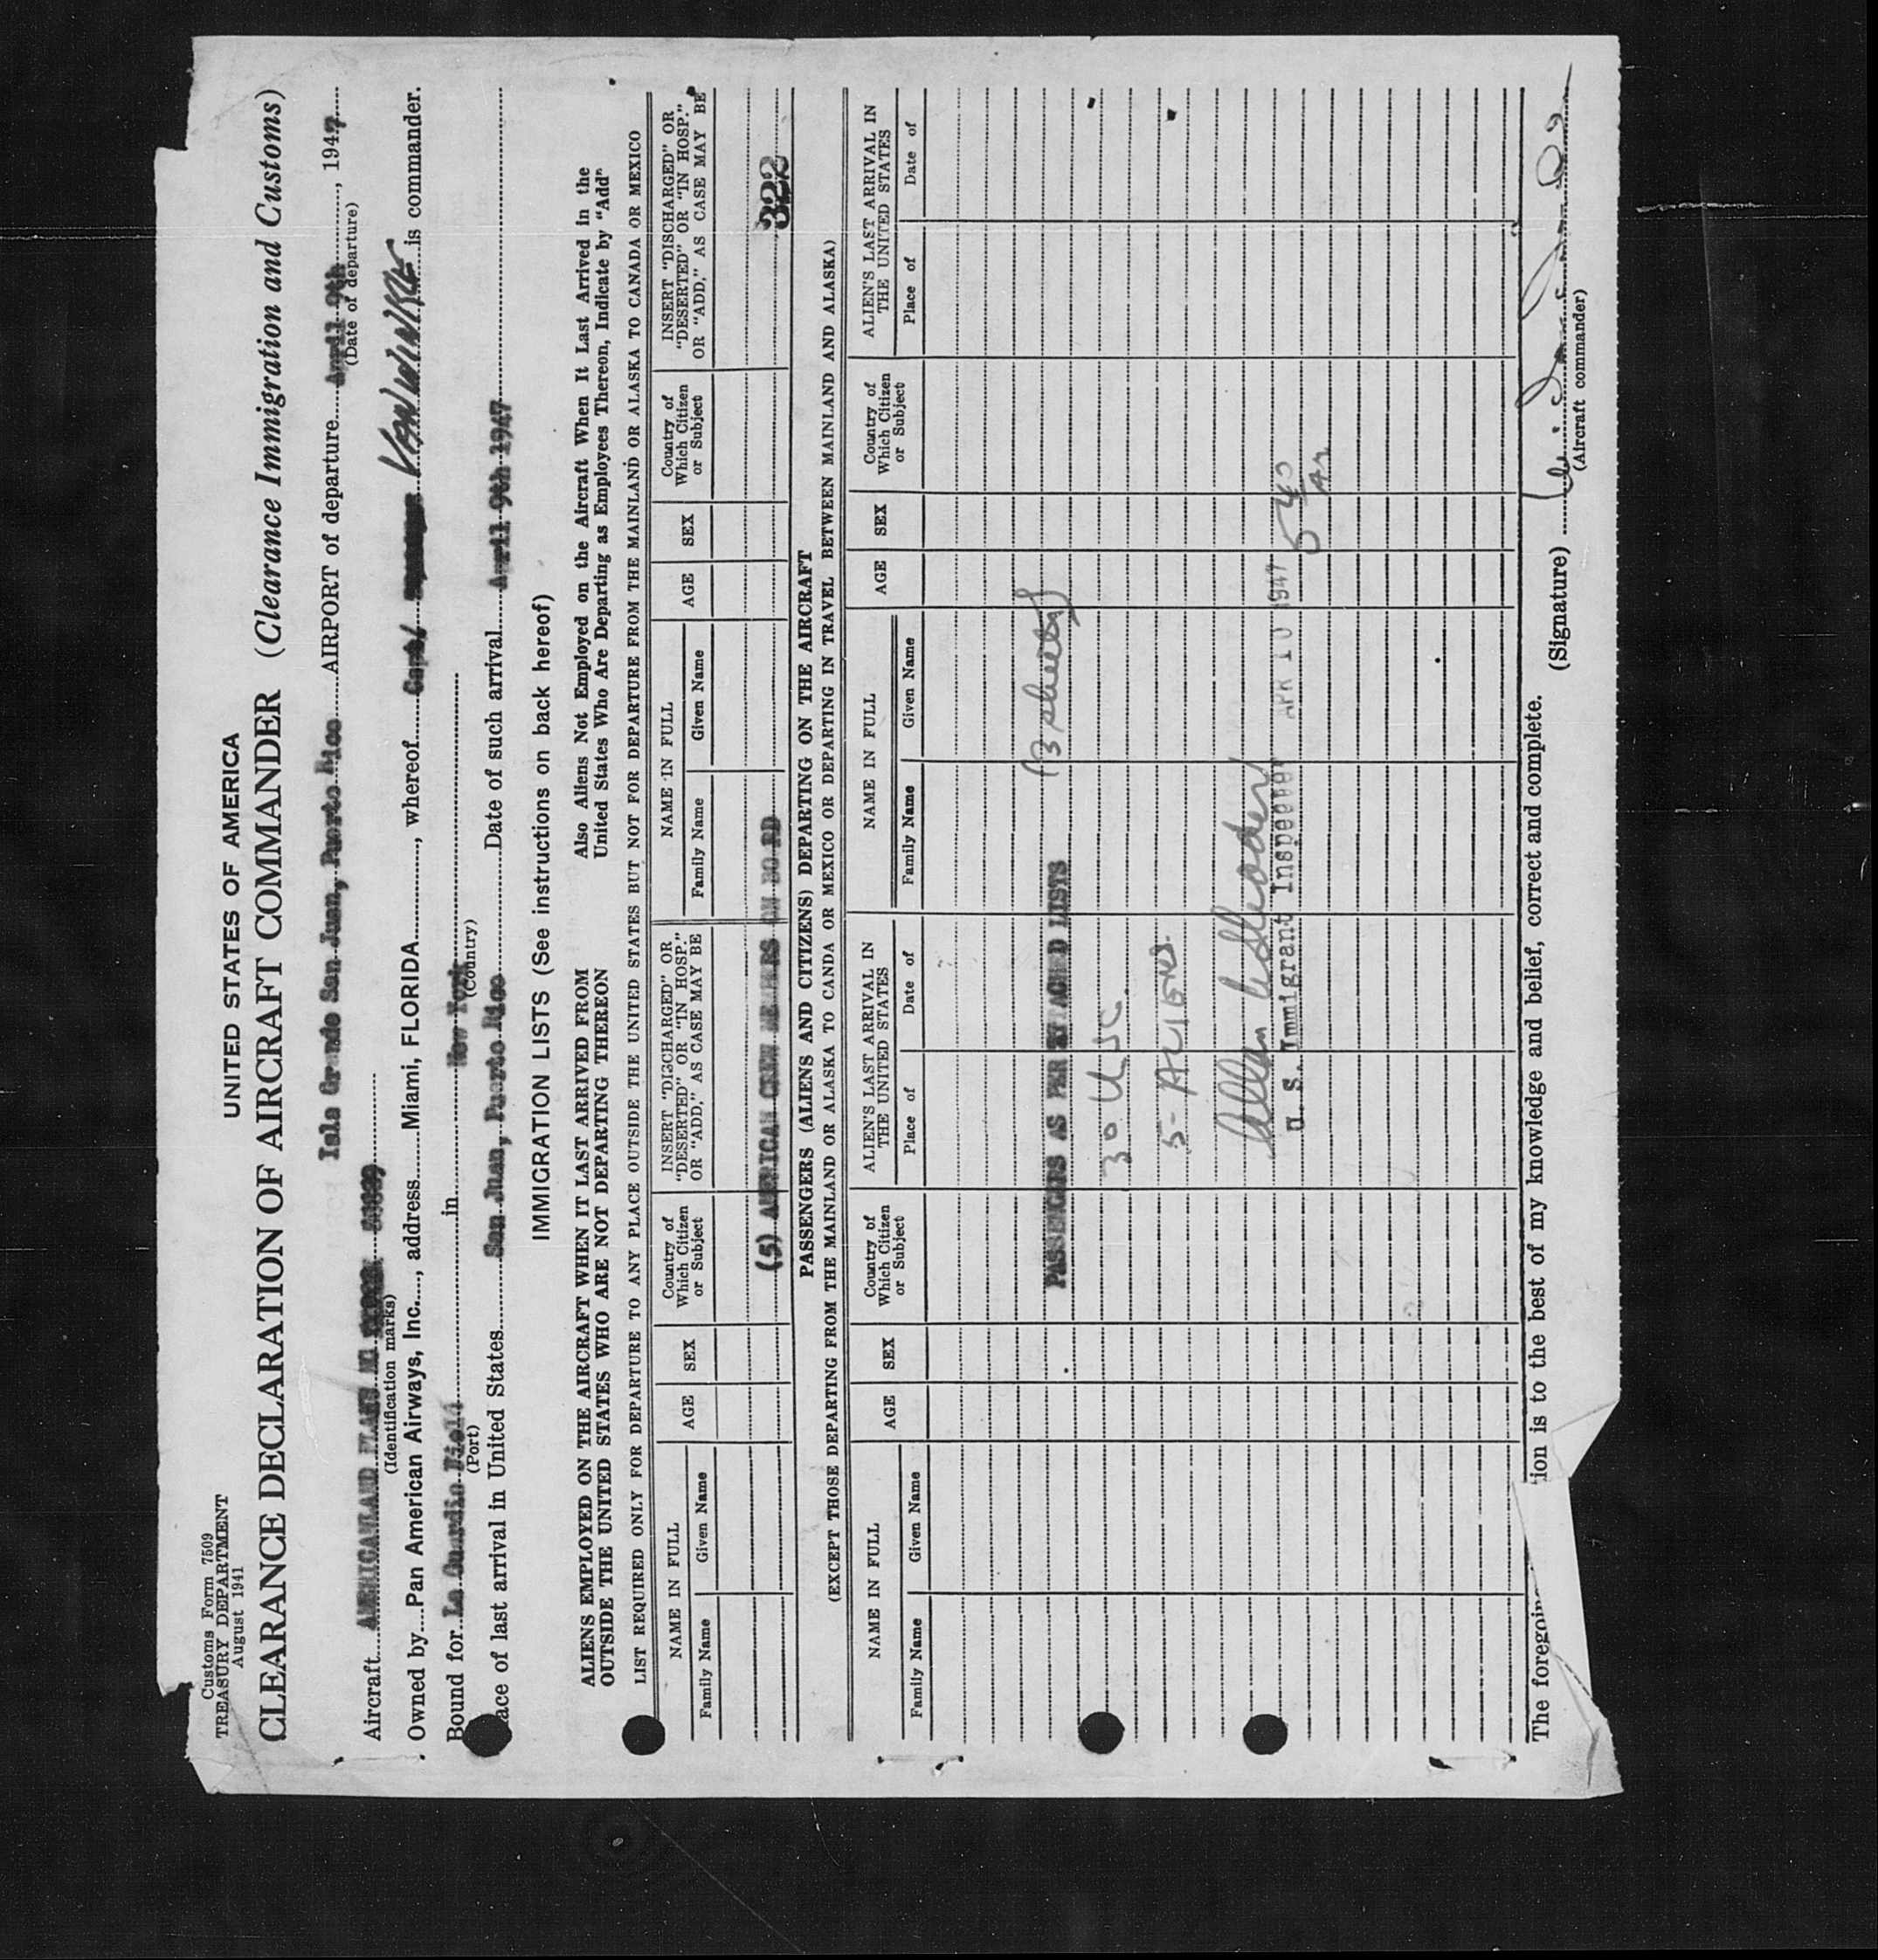 Customs Form 7509
TREASURY DEPARTMENT
August 1941
UNITED STATES OF AMERICA
CLEARANCE DECLARATION OF AIRCRAFT COMMANDER (Clearance Immigration and Customs)
Isla Grande San Juan, Puerto Rico AIRPORT of departure April 9th, 1947
(Date of departure)
Aircraft AMERICANLAND PLANE NO
(Identification marks)
Owned by Pan American Airways, Inc., address Miami, FLORIDA, whereof Capt. VANWINKLE is commander.
Bound for La Guardia Field in New York
(Port) (Country)
ace of last arrival in United States San Juan, Puerto Rico Date of such arrival April 9th 1947
IMMIGRATION LISTS (See instructions on back hereof)
ALIENS EMPLOYED ON THE AIRCRAFT WHEN IT LAST ARRIVED FROM
OUTSIDE THE UNITED STATES WHO ARE NOT DEPARTING THEREON
Also Aliens Not Employed on the Aircraft When It Last Arrived in the
United States Who Are Departing as Employees Thereon, Indicate by "Add"
LIST REQUIRED ONLY FOR DEPARTURE TO ANY PLACE OUTSIDE THE UNITED STATES BUT NOT FOR DEPARTURE FROM THE MAINLAND OR ALASKA TO CANADA OR MEXICO
NAME IN FULL
Family Name
Given Name
AGE
SEX
Country of
Which Citizen
or Subject
INSERT "DISCHARGED" OR
"DESERTED" OR "IN HOSP."
OR "ADD," AS CASE MAY BE
NAME IN FULL
Family Name
Given Name
AGE
SEX
Country of
Which Citizen
or Subject
INSERT "DISCHARGED" OR
"DESERTED" OR "IN HOSP."
OR "ADD," AS CASE MAY BE
(5) AMERICAN CREW MEMBERS ON BO RD
322
PASSENGERS (ALIENS AND CITIZENS) DEPARTING ON THE AIRCRAFT
(EXCEPT THOSE DEPARTING FROM THE MAINLAND OR ALASKA TO CANDA OR MEXICO OR DEPARTING IN TRAVEL BETWEEN MAINLAND AND ALASKA)
NAME IN FULL
Family Name
Given Name
AGE
SEX
Country of
Which Citizen
or Subject
ALIEN'S LAST ARRIVAL IN
THE UNITED STATES
Place of
Date of
NAME IN FULL
Family Name
Given Name
AGE
SEX
Country of
Which Citizen
or Subject
ALIEN'S LAST ARRIVAL IN
THE UNITED STATES
Place of
Date of
PASSENGERS AS PER ATTACH D LISTS
3 sheets
30 USC.
5- ALIENS.
U. S. Immigrant Inspector APR 10 1947
5 40
AM
The foregoin ion is to the best of my knowledge and belief, correct and complete.
(Signature)
(Aircraft commander)